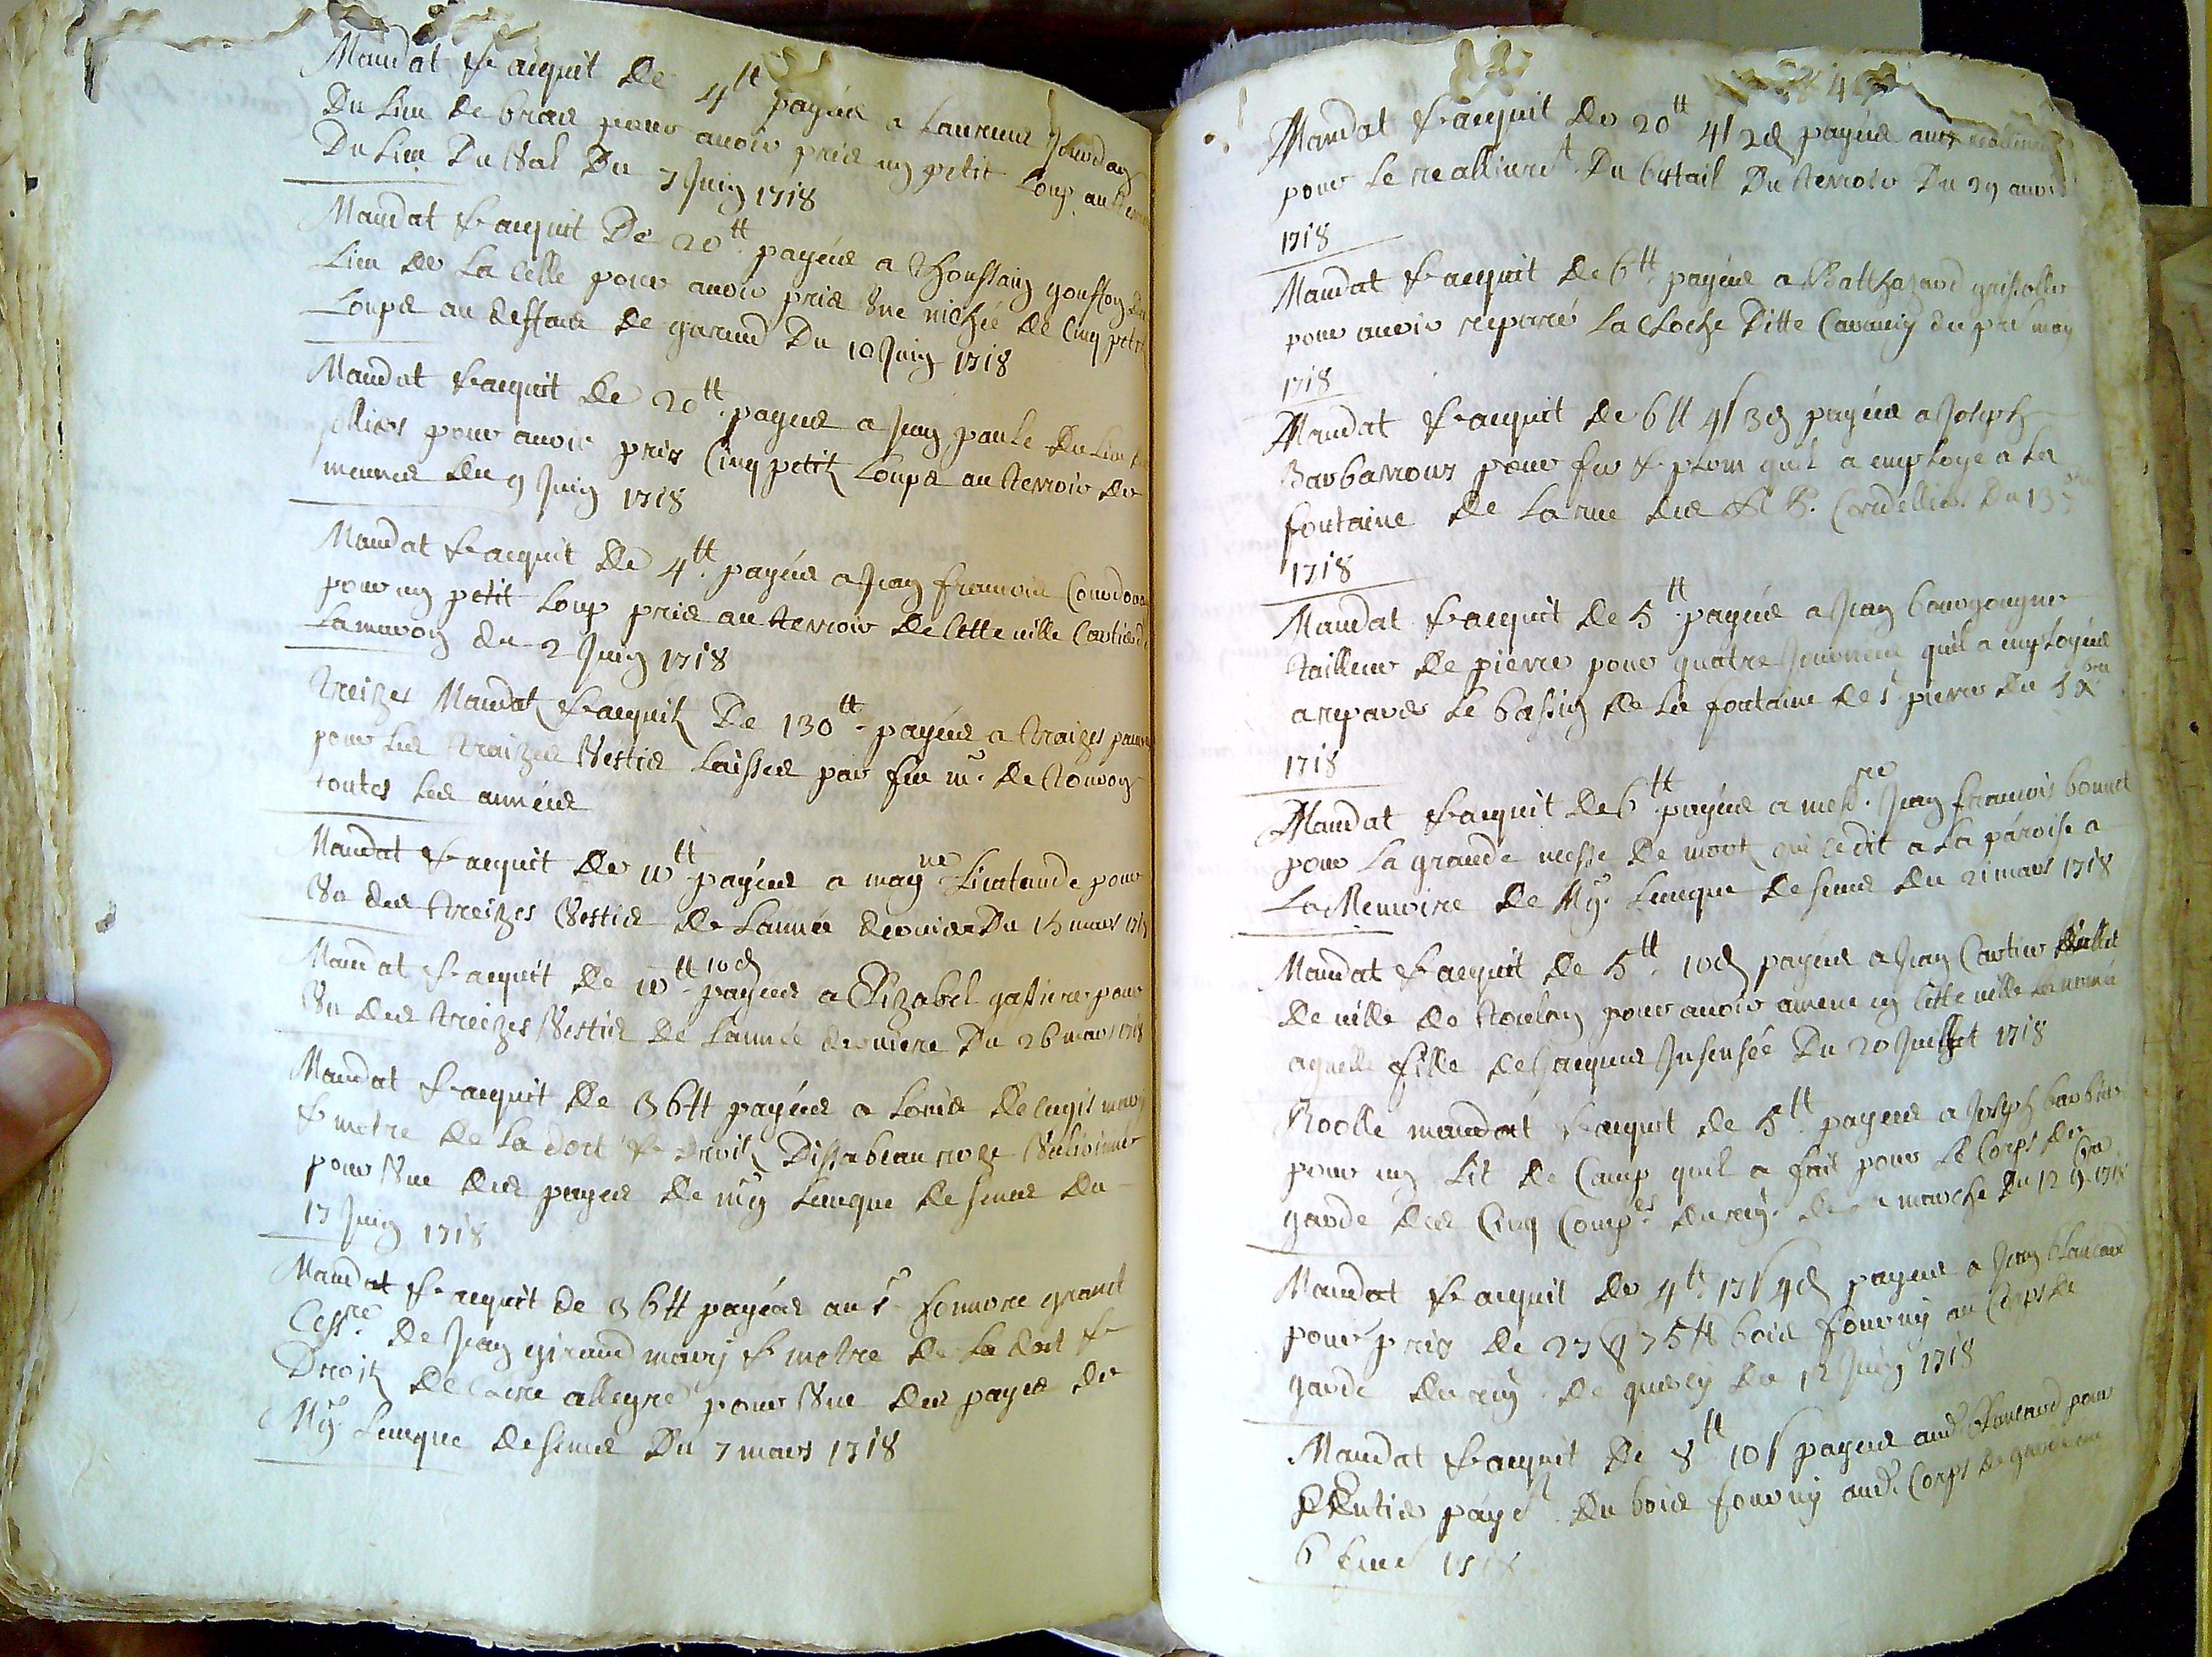 Mandat & acquit de 4tt payées a Laurens Jourdan
Du Lieu de bras pour avoir pris un petit Loup au
Du Lieu Du Val Du 7 Juin 1718
Mandat & acquit De 20tt payées a Thoussain gouffon
Lieu de La Celle pour avoir pris Une nichée de Cinq petits
Loups au deffens de garend Du 10 Juin 1718
Mandat & acquit de 20tt payées a Jean paule du Lieu
pour avoir pris Cinq petits Loups au terroir de
meunes du 9 Juin 1718
Mandat & acquit de 4tt payées a Jean francois
pour un petit Loup pris au terroir de Cette ville Cartier
Lamanon du 2 Juin 1718
treizes Mandats & acquits De 130tt payées a traizes pauvres
pour Les traizes Vesties Laissées par feu mr de
toutes Les années
Mandat & acquit de 10tt payées a magne Licataude pour
Un des treizes Vesties de Lannée derniere Du 15 mars 171
Mandat & acquit de 10tt 10d payées a Elizabel gassiere pour
Un des treizes Vesties de Lannée derniere Du 26 mars 1718
Mandat & acquit de 36tt payées a Louis
& metre de La dott & droits Dissabeau
pour Une des payes de mgr Leveque de senes du
17 Juin 1718
Mandat & acquit de 36tt payées au sr granet
Cessre de Jean giraud mary & metre de La dot &
Droits de Claire allegre pour Une des payes de
Mgr Leveque de senes Du 7 mars 1718
4
Mandat & acquit de 20tt 4s 2d payées aux
pour Le reallivremt Du bestail Du terroir Du 29
1718
Mandat & acquit de 6tt payées a Balthazard
pour avoir reparé La Cloche Ditte Cavanig du prr may
1718
Mandat & acquit de 6tt 4s 3d payées a Joseph
Barbarroux pour fer & plom quil a employé a La
fontaine de La rue des RR. PP. Cordelliers Du 13
1718
Mandat & acquit de 5tt payées a Jean bourgongne
tailleur de pierre pour quatre Journées quil a employées
a reparer Le bassin de La fontaine de St pierre du 5 Xbre
1718
Mandat & acquit de 6tt payées a messre Jean francois bonnet
pour La grande messe de morts qui ce dit a La paroise a
La Memoire de Mgr Leveque de senes du 21 mars 1718
Mandat & acquit de 5tt 10d payées a Jean Cartier
de ville de toulon pour avoir amene en Cette ville La nomée
agnelle fille de Jacques Insensée Du 20 Juillet 1718
Roolle mandat & acquit de 5tt payées a Joseph barbier
pour un Lit de Camp quil a fait pour Le Corps de
garde des Cinq Compes du reg. de la marche Du 12 9bre 1718
Mandat & acquit de 4tt 17s 4d payées a Jean blancard
pour pris de 27 qx 75tt bois fourny au Corps de
garde du reg. de quercy du 12 Juin 1718
Mandat & acquit de 8tt 10s payées aud. blancard pour
Lentier payet du bois fourny aud. Corps de garde
6